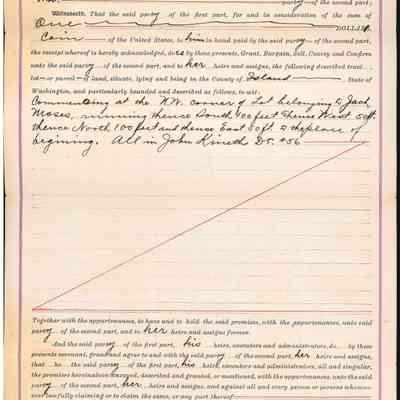 party of the second part;
Witnesseth, That the said party of the first part, for and in consideration of the sum of
One DOLLAR,
Coin of the United States, to him in hand paid by the said party of the second part,
the receipt whereof is hereby acknowledged, does by these presents, Grant, Bargain, Sell, Convey and Confirm
unto the said party of the second part, and to her heirs and assigns, the following described tract
lot or parcel of land, situate, lying and being in the County of Island State of
Washington, and particularly bounded and described as follows, to-wit:
Commencing at the N.W. corner of Lot belonging to Jack
Moses, running thence South, 100 feet thence West 50 ft
thence North, 100 feet and thence East 50 ft to the place of
begining. All in John Kineth D.C. #56
Together with the appurtenances, to have and to hold the said premises, with the appurtenances, unto said
party of the second part, and to her heirs and assigns forever.
And the said party of the first part, his heirs, executors and administrators, do by these
presents covenant, grant and agree to and with the said party of the second part, her heirs and assigns,
that he the said party of the first part, his heirs, executors and administrators, all and singular,
the premises hereinabove conveyed, described and granted, or mentioned, with the appurtenances, unto the said
party of the second part, her heirs and assigns, and against all and every person or persons whomso-
ever lawfully claiming or to claim the same, or any part thereof